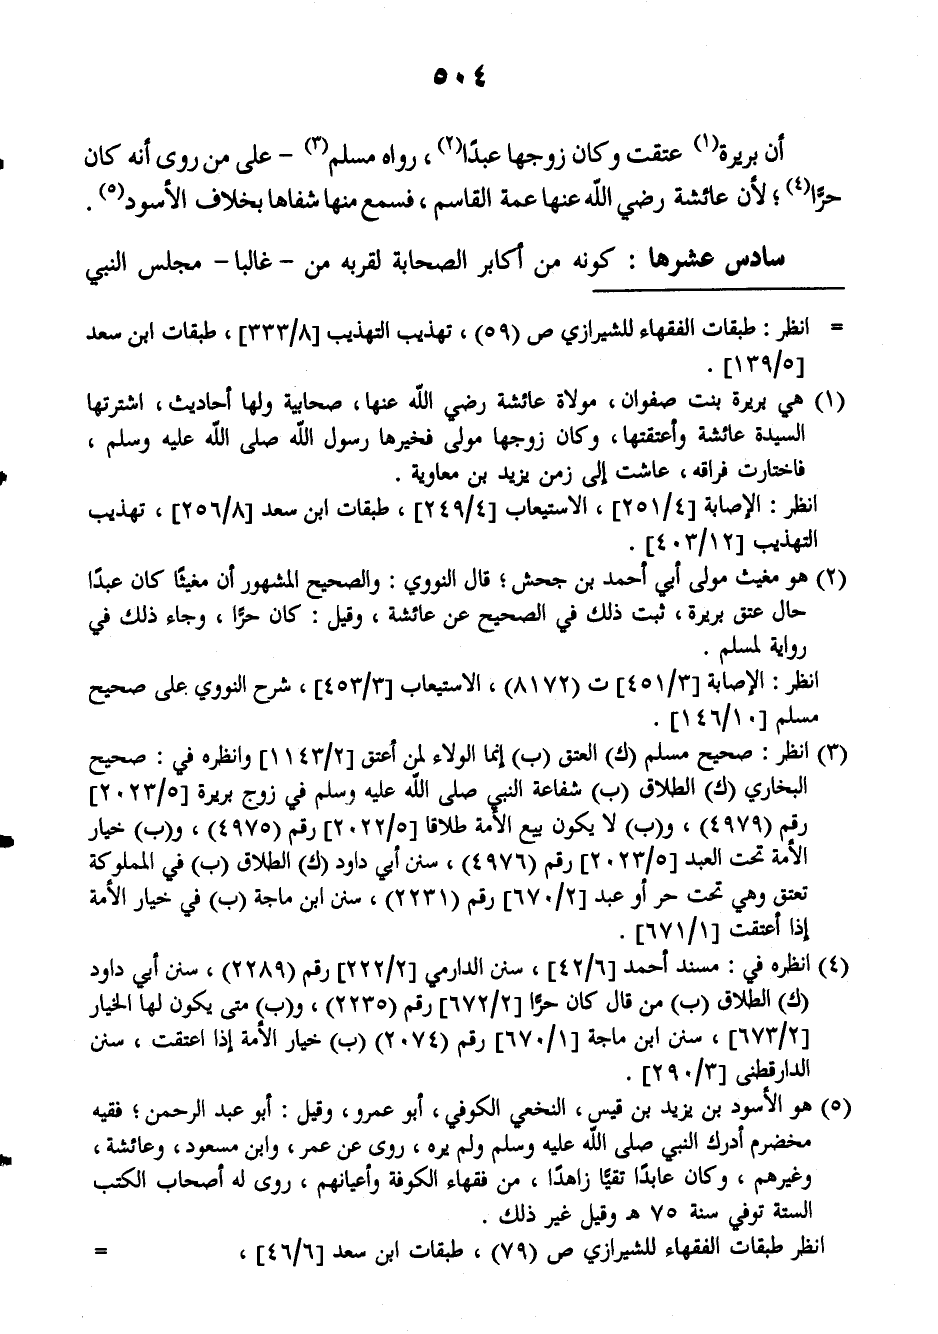 ٥٠٤
أن بريرة(١) عتقت وكان زوجها عبدًا(٢) ، رواه مسلم(٣) - على من روى أنه كان
حرًّا(٤) ؛ لأن عائشة رضي اللّه عنها عمة القاسم ، فسمع منها شفاها بخلاف الأسود(٥) .
سادس عشرها : كونه من أكابر الصحابة لقربه من - غالبا - مجلس النبي
= انظر : طبقات الفقهاء للشيرازي ص (٥٩) ، تهذيب التهذيب [٣٣٣/٨] ، طبقات ابن سعد
[١٣٩/٥] .
(١) هي بريرة بنت صفوان ، مولاة عائشة رضي اللّه عنها ، صحابية ولها أحاديث ، اشترتها
السيدة عائشة وأعتقتها ، وكان زوجها مولى فخيرها رسول اللّه صلى اللّه عليه وسلم ،
فاختارت فراقه ، عاشت إلى زمن يزيد بن معاوية .
انظر : الإصابة [٢٥١/٤] ، الاستيعاب [٢٤٩/٤] ، طبقات ابن سعد [٢٥٦/٨] ، تهذيب
التهذيب [٤٠٣/١٢] .
(٢) هو مغيث مولى أبي أحمد بن جحش ؛ قال النووي : والصحيح المشهور أن مغيثًا كان عبدًا
حال عتق بريرة ، ثبت ذلك في الصحيح عن عائشة ، وقيل : كان حرًّا ، وجاء ذلك في
رواية لمسلم .
انظر : الإصابة [٤٥١/٣] ت (٨١٧٢) ، الاستيعاب [٤٥٣/٣] ، شرح النووي على صحيح
مسلم [١٤٦/١٠] .
(٣) انظر : صحيح مسلم (ك) العتق (ب) إنما الولاء لمن أعتق [١١٤٣/٢] وانظره في : صحيح
البخاري (ك) الطلاق (ب) شفاعة النبي صلى اللّه عليه وسلم في زوج بريرة [٢٠٢٣/٥]
رقم (٤٩٧٩) ، و(ب) لا يكون بيع الأمة طلاقا [٢٠٢٢/٥] رقم (٤٩٧٥) ، و(ب) خيار
الأمة تحت العبد [٢٠٢٣/٥] رقم (٤٩٧٦) ، سنن أبي داود (ك) الطلاق (ب) في المملوكة
تعتق وهي تحت حر أو عبد [٦٧٠/٢] رقم (٢٢٣١) ، سنن ابن ماجة (ب) في خيار الأمة
إذا أعتقت [٦٧١/١] .
(٤) انظره في : مسند أحمد [٤٢/٦] ، سنن الدارمي [٢٢٢/٢] رقم (٢٢٨٩) ، سنن أبي داود
(ك) الطلاق (ب) من قال كان حرًّا [٦٧٢/٢] رقم (٢٢٣٥) ، و(ب) متى يكون لها الخيار
[٦٧٣/٢] ، سنن ابن ماجة [٦٧٠/١] رقم (٢٠٧٤) (ب) خيار الأمة إذا اعتقت ، سنن
الدارقطنى [٢٩٠/٣] .
(٥) هو الأسود بن يزيد بن قيس ، النخعي الكوفي ، أبو عمرو ، وقيل : أبو عبد الرحمن ؛ فقيه
مخضرم أدرك النبي صلى اللّه عليه وسلم ولم يره ، روى عن عمر ، وابن مسعود ، وعائشة ،
وغيرهم ، وكان عابدًا تقيًّا زاهدًا ، من فقهاء الكوفة وأعيانهم ، روى له أصحاب الكتب
الستة توفي سنة ٧٥ هـ وقيل غير ذلك .
انظر طبقات الفقهاء للشيرازي ص (٧٩) ، طبقات ابن سعد [٤٦/٦] ، =